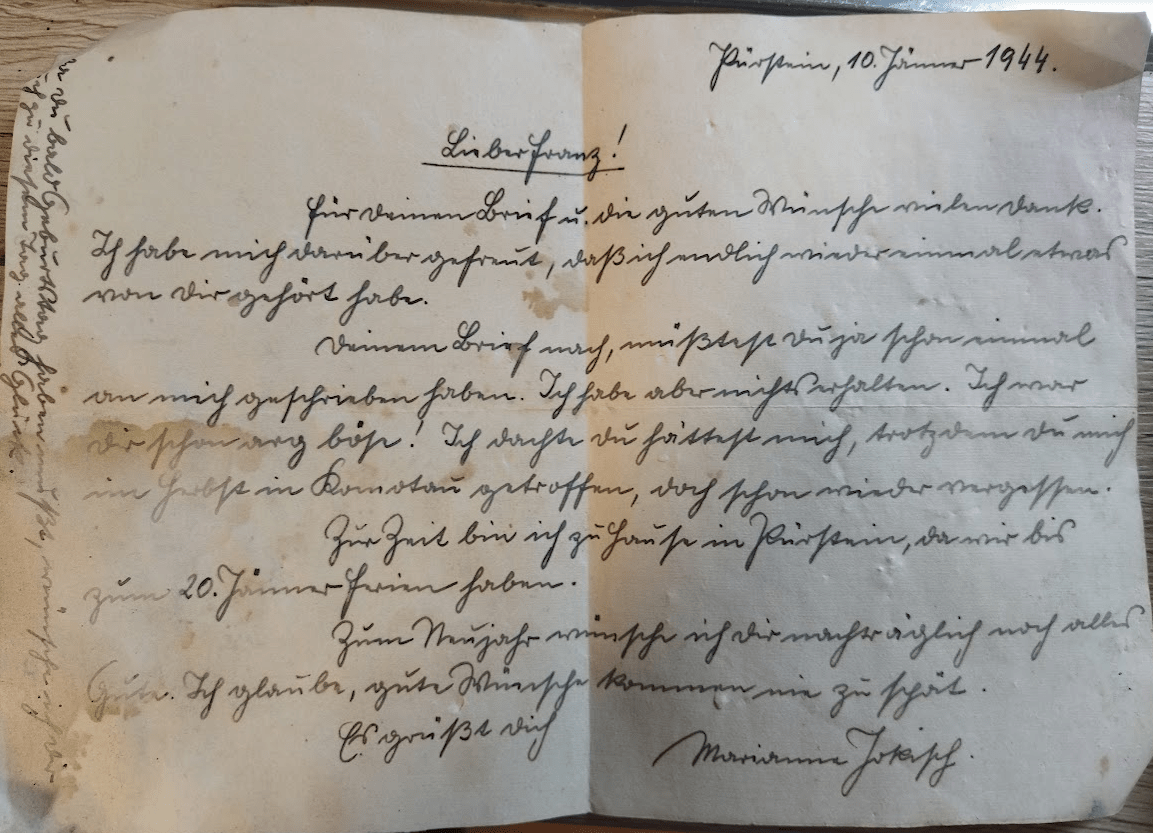 Pürstein, 10. Jänner 1944.
Lieber Franz!
Für deinen Brief u. die guten Wünsche vielen Dank.
Ich habe mich darüber gefreut, daß ich endlich wieder einmal etwas
von dir gehört habe.
Deinem Brief nach, müßtest Du ja schon einmal
an mich geschrieben haben. Ich habe aber nichts erhalten. Ich war
dir schon arg böse! Ich dachte du hättest mich, trotzdem du mich
im Herbst in Komotau getroffen, doch schon wieder vergessen.
Zur Zeit bin ich zu Hause in Pürstein, da wir bis
zum 20. Jänner Ferien haben.
Zum Neujahr wünsche ich dir nachträglich noch alles
Gute. Ich glaube, gute Wünsche kommen nie zu spät.
Es grüßt dich
Marianne Jokisch.
Da du bald Geburtstag haben mußt, wünsche ich dir
ich zu diesem Tag alles Glück.